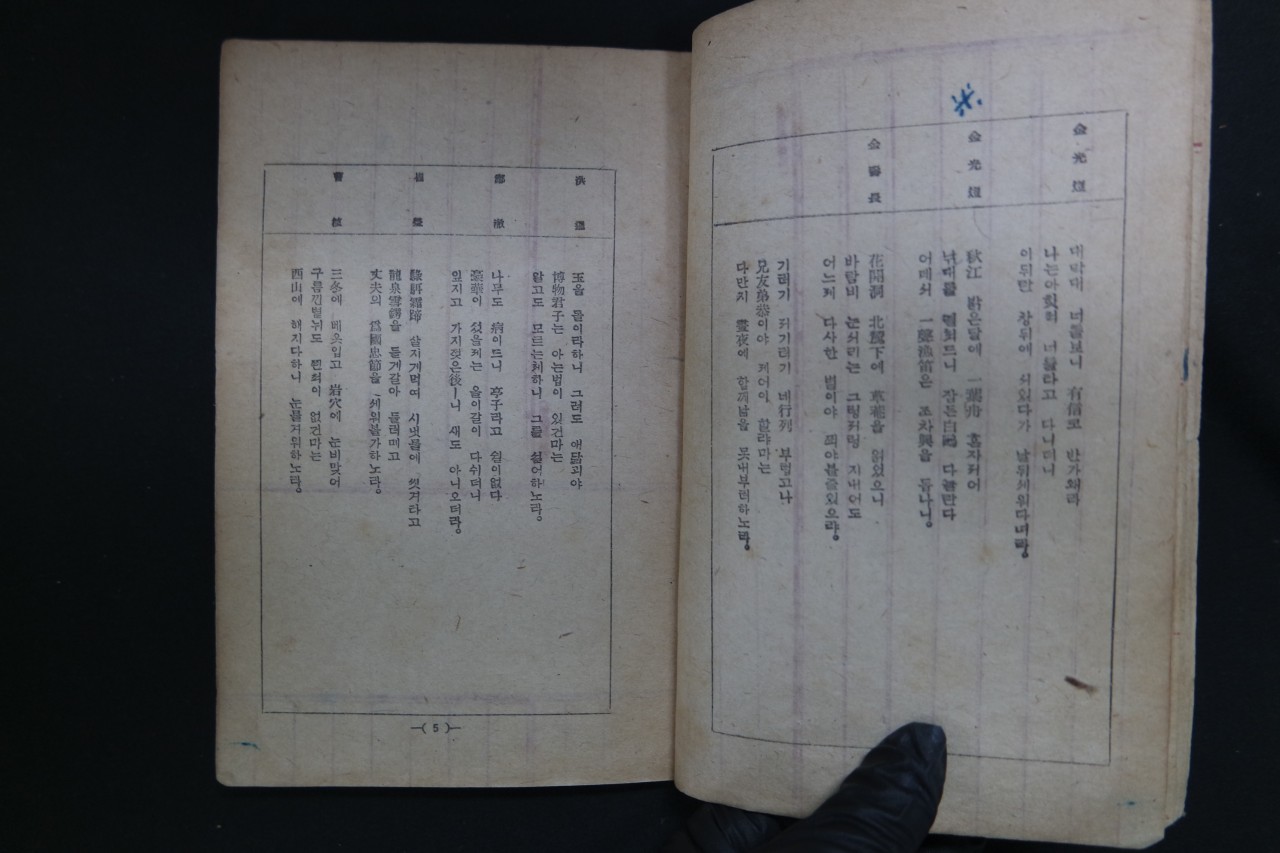 金光煜
대막대 너를보니 有信코 반가왜라
나는아힛쩍 너를타고 다니더니
이뒤란 창뒤에 섯있다가 날뒤세워다녀라。
金光煜
秋江 밝은달에 一葉舟 혼자저어
낚대를 떨쳐드니 잠든白鷗 다놀란다
어데서 一聲漁笛은 조차興을 돕나니。
金壽長
花開洞 北麓下에 草菴을 얽었으니
바람비 눈서리는 그렁저렁 지내어도
어느제 다사한 볕이야 쬐야볼줄있으랴。
기러기 저기러기 네行列 부럽고나
兄友弟恭이야 제어이 할랴마는
다만지 晝夜에 함께남을 못내부러하노라。
洪暹
玉을 돌이라하니 그려도 애닯괴야
博物君子는 아는법이 있건마는
알고도 모르는체하니 그를 설어하노라。
鄭澈
나무도 病이드니 亭子라고 쉴이없다
豪華이 섰을제는 올이갈이 다쉬더니
잎지고 가지젖은後ㅣ니 새도 아니오더라。
崔瑩
綠駬霜蹄 살지게먹여 시냇물에 씻겨타고
龍泉雪鍔을 들게갈아 들러메고
丈夫의 爲國忠節을 세워볼가하노라。
曹植
三冬에 베옷입고 岩穴에 눈비맞어
구름낀볕뉘도 쬔적이 없건마는
西山에 해지다하니 눈물겨워하노라。
—( 5 )—